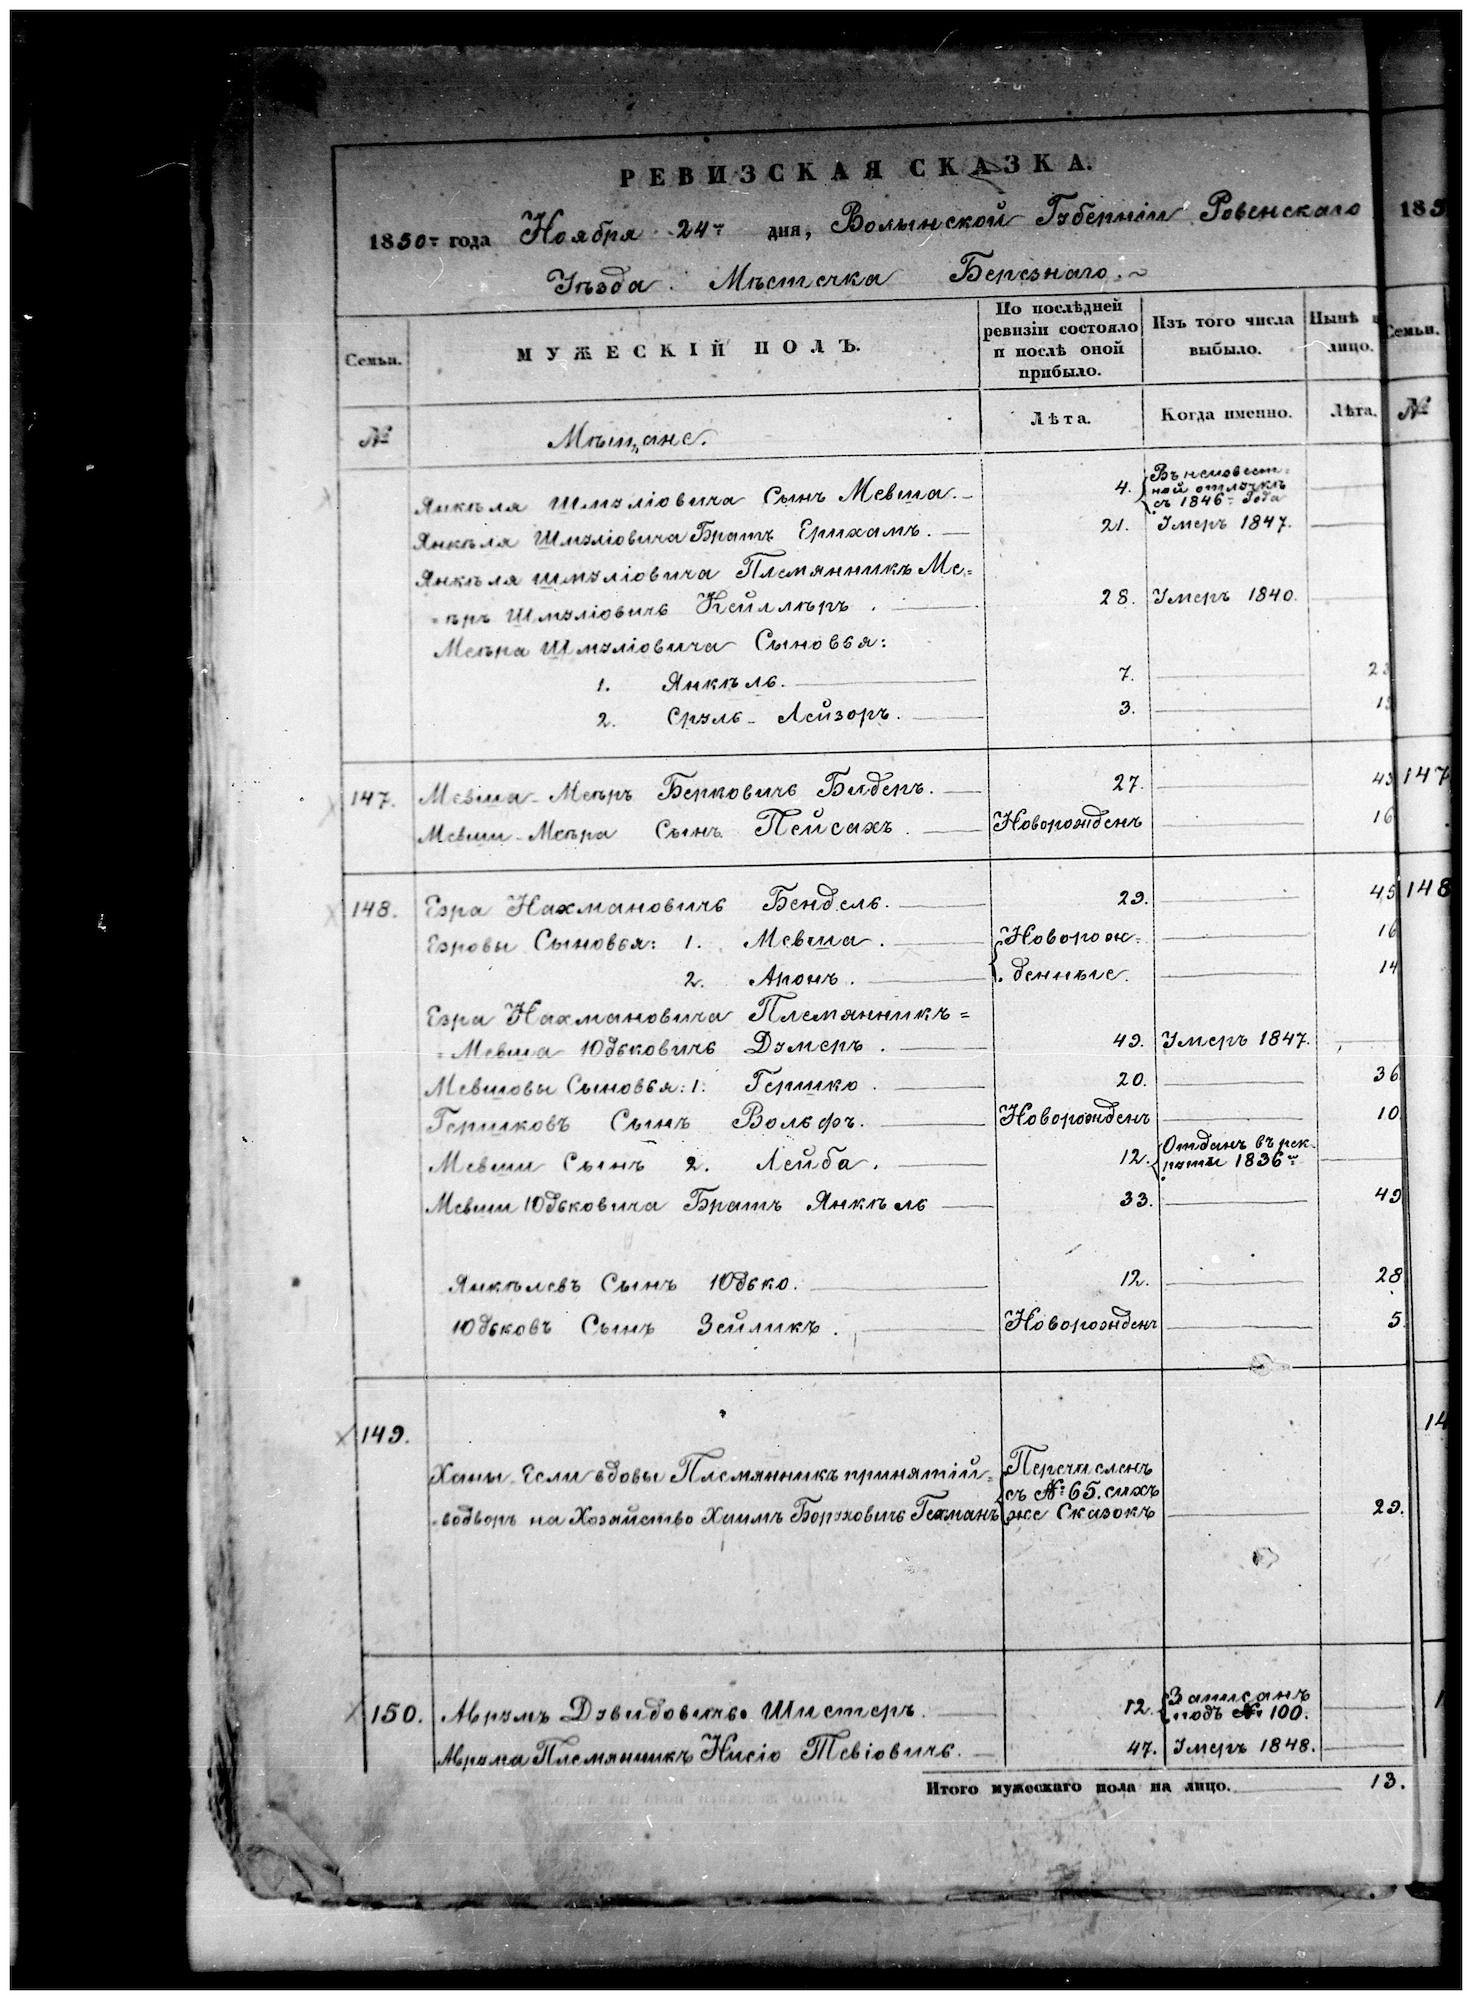 РЕВИЗСКАЯ СКАЗКА.
1850го года Ноября 24го дня, Волынской Губерніи Ровенскаго
Уѣзда Мѣстечка Березнаго.
Семьи. МУЖЕСКІЙ ПОЛЪ. По послѣдней ревизіи состояло и послѣ оной прибыло. Изъ того числа выбыло. Нынѣ лицо. Семьи.
№ Мѣщане. Лѣта. Когда именно. Лѣта. №
Янкѣля Шмуліовича Сынъ Мевша. 4. Въ неизвест=ной отлучкѣ съ 1846го года
Янкѣля Шмуліовича Братъ Ерихамъ. 21. Умеръ 1847.
Янкѣля Шмуліовича Племянникъ Ме=
=ѣръ Шмуліовичь Кейллеръ. 28. Умеръ 1840.
Меѣра Шмуліовича Сыновья:
1. Янкѣль. 7. 23
2. Сруль-Лейзоръ. 3. 19
147. Мевша-Меѣръ Берковичь Бидеръ. 27. 43 147
Мевши-Меѣра Сынъ Пейсахъ. Новорожденъ 16
148. Езра Нахмановичь Бендель. 29. 45 148
Езровы Сыновья: 1. Мевша. Новорож= 16
2. Аронъ. денные. 14
Езра Нахмановича Племянникъ=
=Мевша Юдьковичь Думеръ. 49. Умеръ 1847.
Мевшовы Сыновья: 1. Гершко. 20. 36
Гершковъ Сынъ Вольфъ. Новорожденъ 10
Мевши Сынъ 2. Лейба. 12. Отданъ въ рек=руты 1836го
Мевши Юдьковича Братъ Янкѣль 33. 49
Янкѣлевъ Сынъ Юдько. 12. 28
Юдьковъ Сынъ Зейликъ. Новорожденъ 5.
149.
Ханы Если вдовы Племянникъ принятій= Перечисленъ
съ № 65. сихъ
=водворъ на Хозяйство Хаимъ Боруховичь Гехманъ же Сказокъ 29.
150. Аврумъ Дувидовичь Шистеръ. 12. Записанъ подъ № 100.
Аврума Племянникъ Нисіо Тевіовичь. 47. Умеръ 1848.
Итого мужескаго пола на лицо. 13.